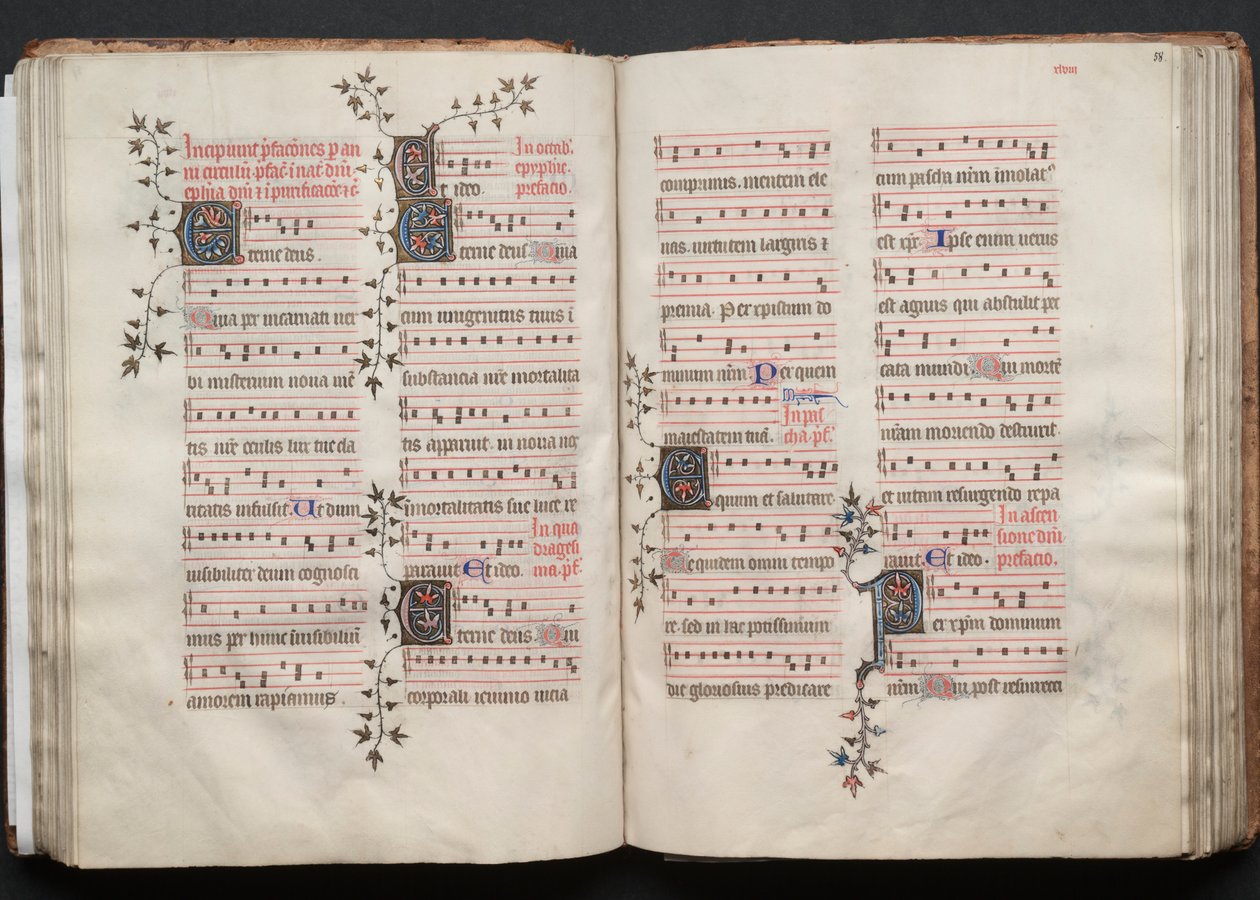 Incipiunt p̄fac̄ones p an
ni circulū. p̄fac̄ i nat̄ dn̄i.
ephīa dn̄i ⁊ i purificac̄oē ⁊c̄
Eterne deus.
Quia per incarnati uer
bi misterium noua mē
tis nr̄e oculis lux tue cla
ritatis infulsit. Ut dum
uisibiliter deum cognosci
mus per hunc īuisibiliū
amorem rapiamus.
Et ideo.
In octab̄.
epyphīe.
prefacio.
Eterne deus Quia
cum unigenitus tuus ī
substancia nr̄e mortalita
tis apparuit. in noua nos
īmortalitatis sue luce re
parauit Et ideo.
In qua
dragesi
ma. p̄f.
Eterne deus Qui
corporali ieiunio uicia
xlviij
58.
comprimis. mentem ele
uas. uirtutem largiris ⁊
premia. Per xpistum do
minum nr̄m Per quem
maiestatem tuā.
In pas
cha. p̄f.
Equum et salutare.
Te quidem omni tempo
re. sed in hac potissimum
die gloriosius predicare
cum pascha nr̄m īmolatꝰ
est xp̄c. Ipse enim uerus
est agnus qui abstulit pec
cata mundi Qui mortē
nr̄am moriendo destruxit.
et uitam resurgendo repa
rauit. Et ideo.
In ascen
sione dn̄i
prefacio.
Per xp̄m dominum
nr̄m Qui post resurrecti